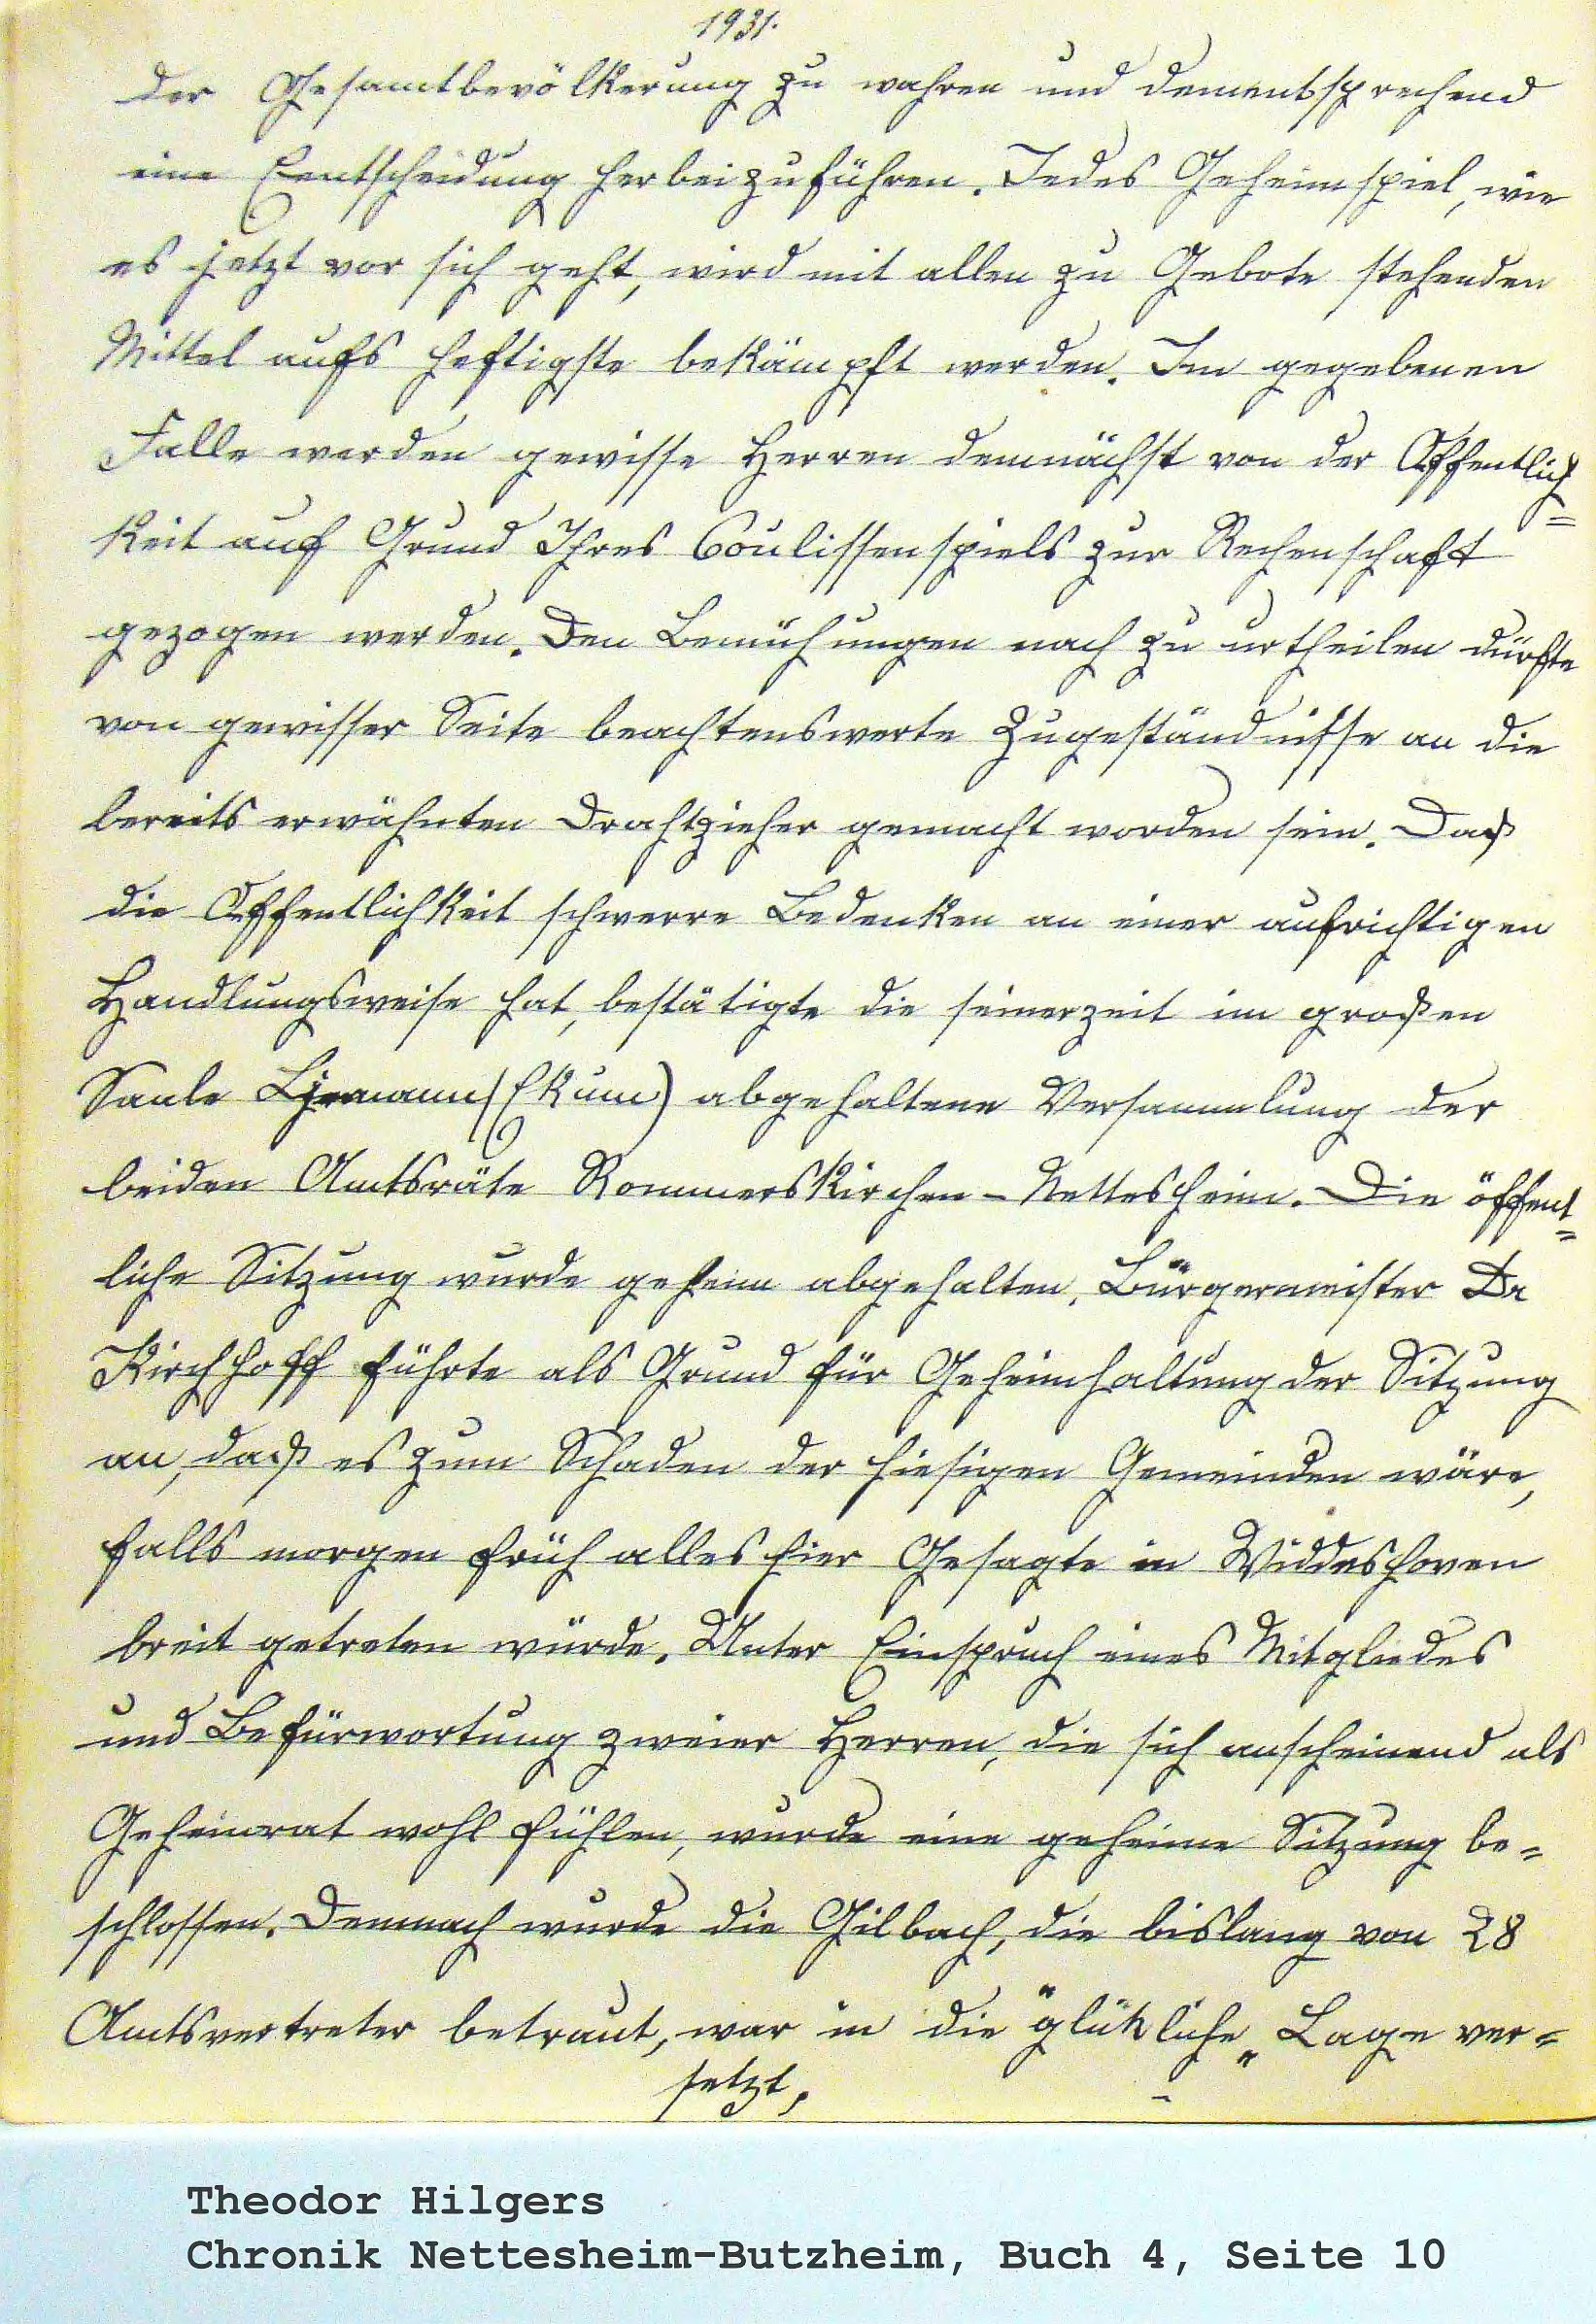 1931.
der Gesamtbevölkerung zu wahren und dementsprechend
eine Eentscheidung herbeizuführen. Jedes Geheimspiel, wie
es jetzt vor sich geht, wird mit allen zu Gebote stehenden
Mittel aufs heftigste bekämpft werden. Im gegebenen
Falle werden gewisse Herren demnächst von der Öffentlich=
keit auf Grund Ihres Coulissenspiels zur Rechenschaft
gezogen werden. Den Bemühungen nach zu urtheilen dürfte
von gewisser Seite beachtenswerte Zugeständnisse an die
bereits erwähnten Drahtzieher gemacht worden sein. Daß
die Öffentlichkeit schwerre Bedenken an einer aufrichtigen
Handlungsweise hat, bestätigte die seinerzeit im großen
Saale (Ekum) abgehaltene Versammlung der
beiden Amtsräte Rommerskirchen - Nettesheim. Die öffent=
liche Sitzung wurde geheim abgehalten, Bürgermeister Dr
Kirchhoff führte als Grund für Geheimhaltung der Sitzung
an, daß es zum Schaden der hiesigen Gemeinden wäre,
falls morgen früh alles hier Gesagte in Widdeshoven
breit getreten würde. Unter Einspruch eines Mitgliedes
und Befürwortung zweier Herren, die sich anscheinend als
Geheimrat wohl fühlen, wurde eine geheime Sitzung be=
schlossen. Demnach wurde die Gilbach, die bislang von 28
Amtsvertreter betraut, war in die "glükliche" Lage ver=
setzt,
Theodor Hilgers
Chronik Nettesheim-Butzheim, Buch 4, Seite 10